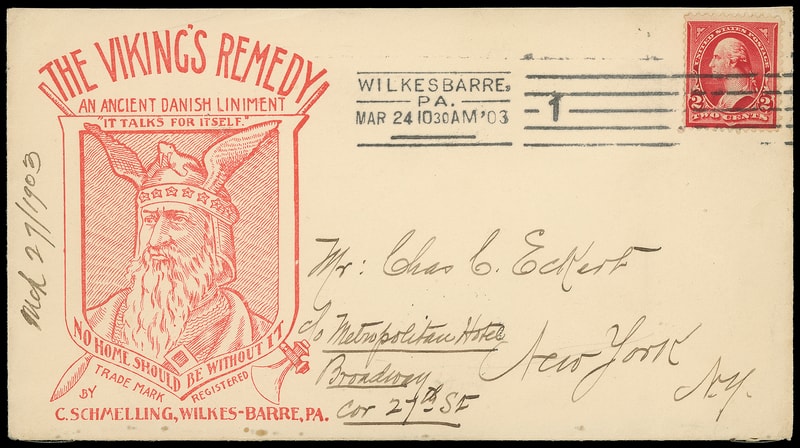 THE VIKING'S REMEDY
AN ANCIENT DANISH LINIMENT
"IT TALKS FOR ITSELF."
NO HOME SHOULD BE WITHOUT IT
TRADE MARK REGISTERED
BY
C. SCHMELLING, WILKES-BARRE, PA.
Mch 27/1903
WILKESBARRE,
PA.
MAR 24 1030AM '03
1
UNITED STATES POSTAGE
2 2
TWO CENTS
Mr: Chas C. Eckert
c/o Metropolitan Hotel
Broadway
Cor 27th St
New York
N.Y.